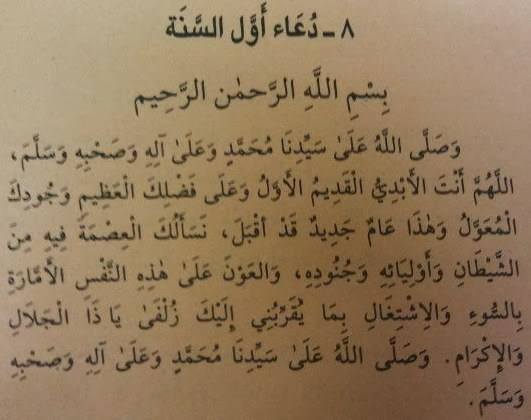 ٨ - دُعَاء أَوَّل السَّنَة
بِسْمِ اللَّهِ الرَّحمٰن الرَّحِيم
وَصَلَّى اللَّهُ عَلَىٰ سَيِّدِنَا مُحَمَّدٍ وَعَلَىٰ آلِهِ وَصَحْبِهِ وَسَلَّمَ،
اللَّهُمَّ أَنْتَ الْأَبْدِيُّ الْقَدِيمُ الأَوَّلُ وَعَلَى فَضْلِكَ الْعَظِيمِ وَجُودِكَ
الْمُعَوَّلُ وَهٰذَا عَامٌ جَدِيدٌ قَدْ أَقْبَلَ، نَسَأَلُكَ الْعِصْمَةَ فِيهِ مِنَ
الشَّيْطَانِ وَأَوْلِيَائِهِ وَجُنُودِهِ، وَالعَوْنَ عَلَىٰ هٰذِهِ النَّفْسِ الأَمَّارَةِ
بِالسُّوءِ وَالِاشْتِغَالِ بِمَا يُقَرِّبُنِي إِلَيْكَ زُلْفَىٰ يَا ذَا الْجَلَالِ
وَالإِكْرَامِ. وَصَلَّى اللَّهُ عَلَىٰ سَيِّدِنَا مُحَمَّدٍ وَعَلَىٰ آلِهِ وَصَحْبِهِ
وَسَلَّمَ.